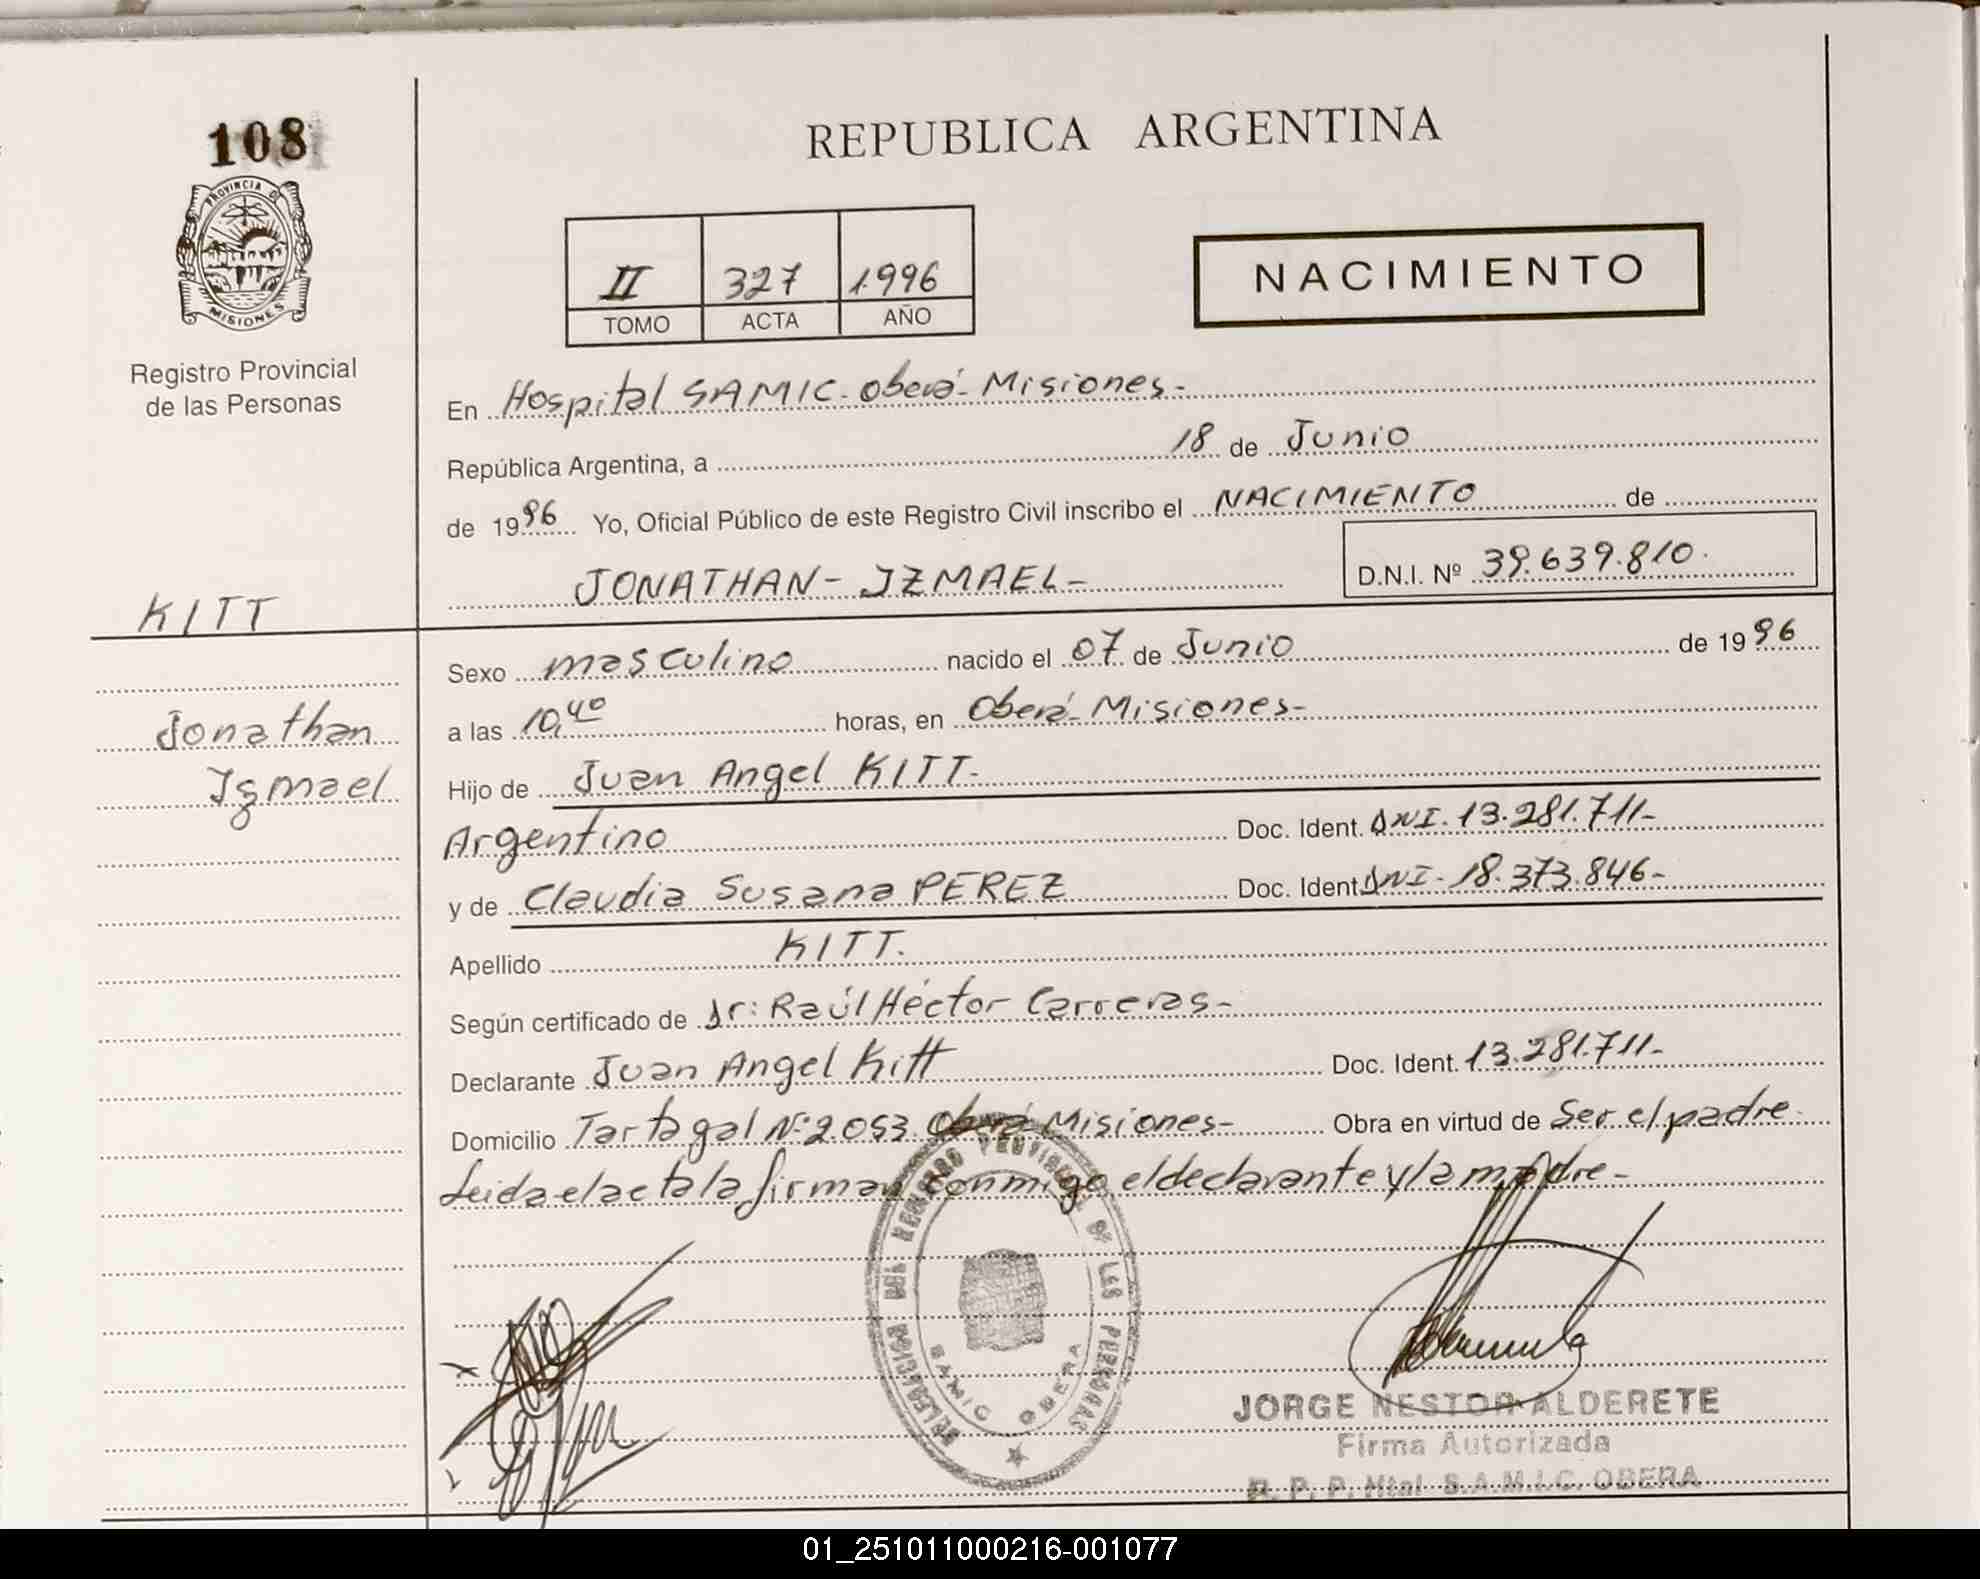 108
PROVINCIA DE
MISIONES
Registro Provincial
de las Personas
REPUBLICA ARGENTINA
II 327 1.996
TOMO ACTA AÑO
NACIMIENTO
En Hospital SAMIC - Oberá - Misiones -
República Argentina, a 18 de Junio
de 1996 Yo, Oficial Público de este Registro Civil inscribo el NACIMIENTO de
JONATHAN - IZMAEL - D.N.I. Nº 39.639.810.
KITT
Jonathan
Izmael
Sexo masculino nacido el 07 de Junio de 1996
a las 10,40 horas, en Oberá - Misiones -
Hijo de Juan Angel KITT -
Argentino Doc. Ident. DNI. 13.281.711 -
y de Claudia Susana PEREZ Doc. Ident. DNI - 18.373.846 -
Apellido KITT.
Según certificado de Dr: Raúl Héctor Carreras -
Declarante Juan Angel Kitt Doc. Ident. 13.281.711 -
Domicilio Tartagal Nº 2.053 Oberá Misiones - Obra en virtud de Ser el padre -
Leida el acta la firman conmigo el declarante y la madre -
DELEGACION DEL REGISTRO PROVINCIAL DE LAS PERSONAS
SAMIC OBERA
JORGE NESTOR ALDERETE
Firma Autorizada
R. P. P. Htal S.A.M.I.C. OBERA
01_251011000216-001077